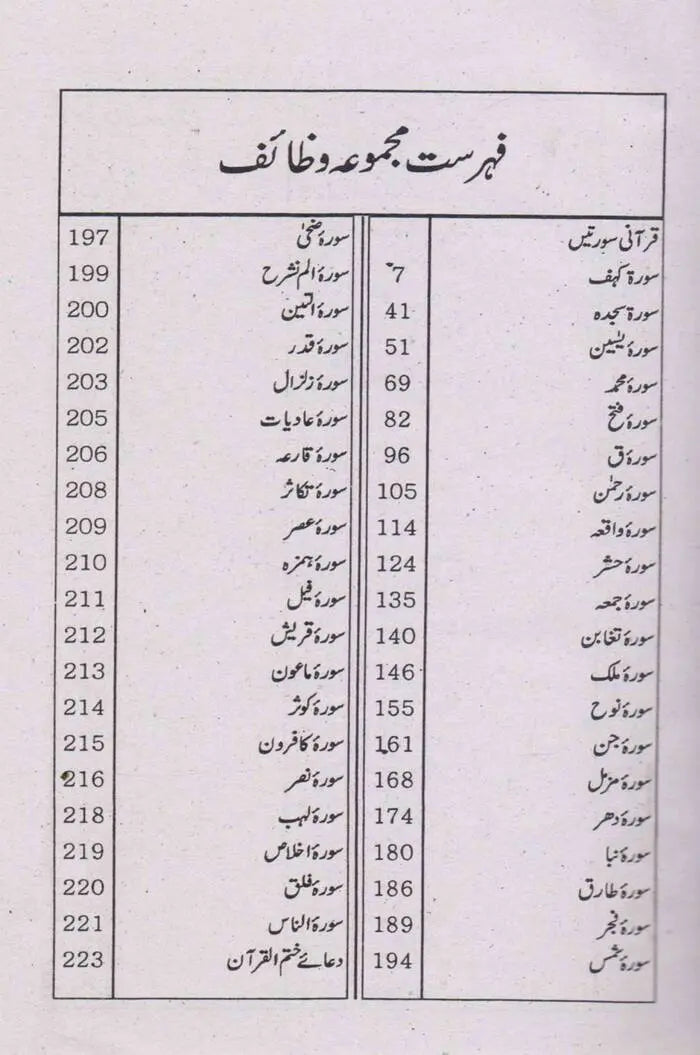 فہرست مجموعہ وظائف
قرآنی سورتیں
سورۃ کہف 7
سورۃ سجدہ 41
سورۂ یٰسین 51
سورۂ محمد 69
سورۂ فتح 82
سورۂ ق 96
سورۂ رحمٰن 105
سورۂ واقعہ 114
سورۂ حشر 124
سورۂ جمعہ 135
سورۂ تغابن 140
سورۂ ملک 146
سورۂ نوح 155
سورۂ جن 161
سورۂ مزمل 168
سورۂ دھر 174
سورۂ نبا 180
سورۂ طارق 186
سورۂ فجر 189
سورۂ شمس 194
سورۂ ضحیٰ 197
سورۂ الم نشرح 199
سورۂ التین 200
سورۂ قدر 202
سورۂ زلزال 203
سورۂ عادیات 205
سورۂ قارعہ 206
سورۂ تکاثر 208
سورۂ عصر 209
سورۂ ہمزہ 210
سورۂ فیل 211
سورۂ قریش 212
سورۂ ماعون 213
سورۂ کوثر 214
سورۂ کافرون 215
سورۂ نصر 216
سورۂ لہب 218
سورۂ اخلاص 219
سورۂ فلق 220
سورۂ الناس 221
دعائے ختم القرآن 223